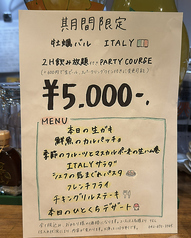 期間限定
牡蠣バル ITALY
2H飲み放題付 - PARTY COURSE
¥5,000-.
MENU
本日の生ガキ
鮮魚のカルパッチョ
季節のフルーツとマスカルポーネの生ハム巻
ITALYサラダ
シェフの気まぐれパスタ
フレンチフライ
チキングリルステーキ
本日のひとくちデザート